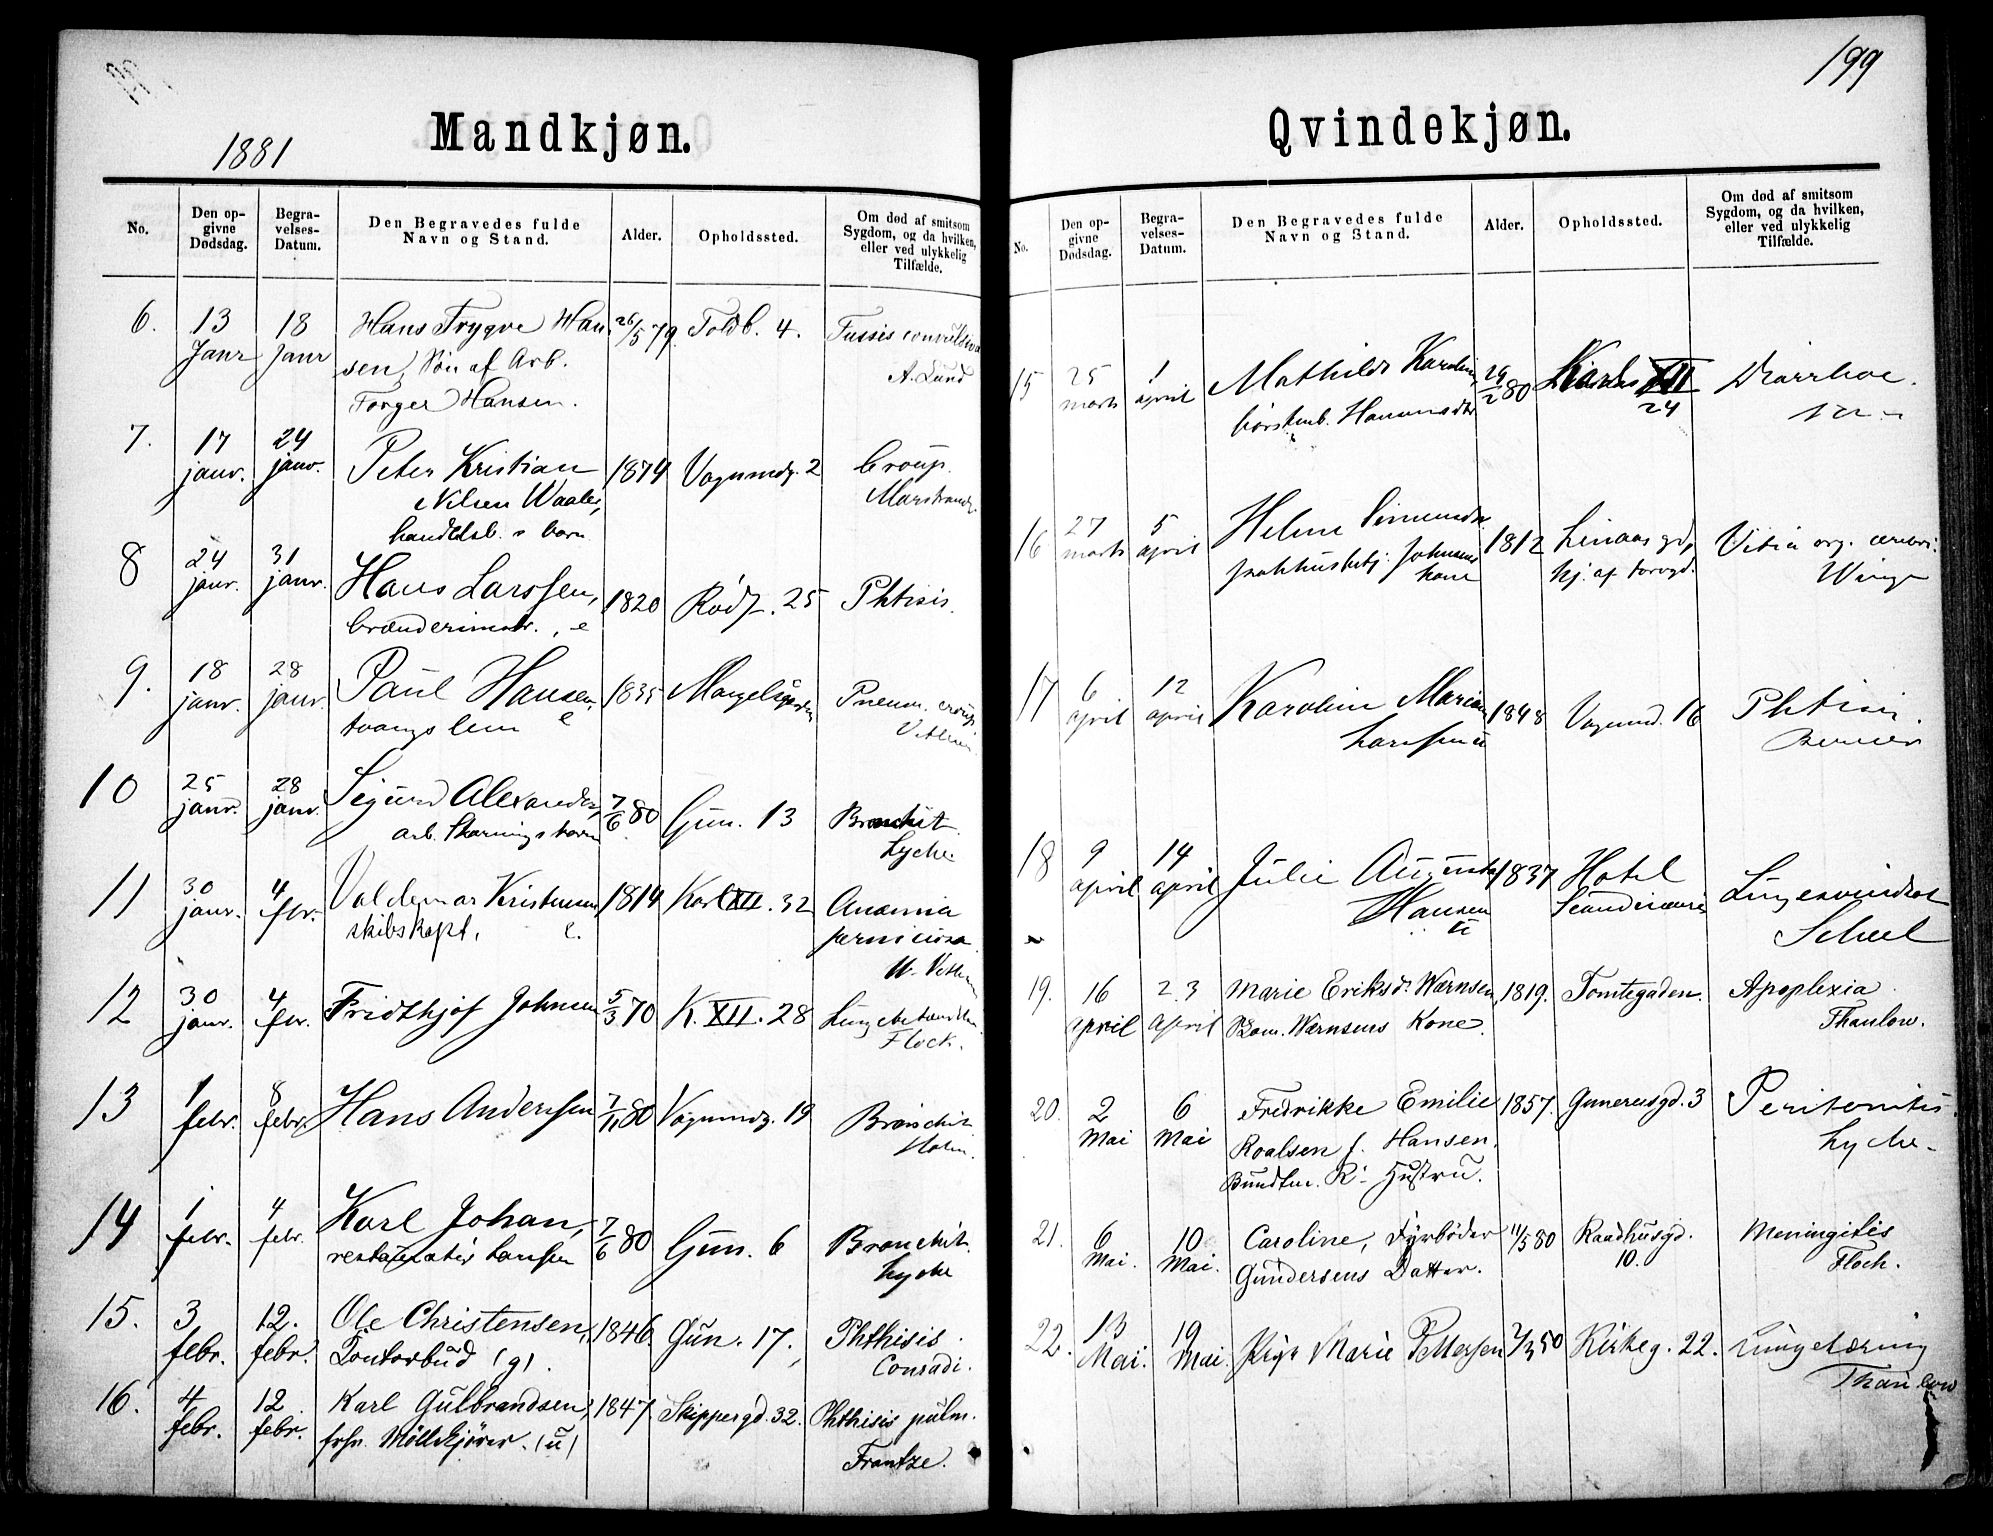 1881
Mandkjøn.
No.
Den op-
givne
Dødsdag.
Begra-
velses-
Datum.
Den Begravedes fulde
Navn og Stand.
Alder.
Opholdssted.
Om død af smitsom
Sygdom, og da hvilken,
eller ved ulykkelig
Tilfælde.
6. 13 Janr 18 Janr Hans Trygve Han- 26/5 79. Toldb. 4. Tussis convulsiva
sen, Søn af Arb. A. Lund
Torger Hansen.
7. 17 janr. 24 janr. Peter Kristian 1874 Vognmdg. 2 Croup.
Nilsen Waaler, Marstrand
handelsb. s barn
8 24 janr. 31 janr. Hans Larssen, 1820 Rødf. 25 Phtisis.
brænderimstr., e
9. 18 janr. 28 janr. Paul Hansen, 1835 Mangelsgaarden Pneum. croup.
tvangslem e
10 25 janr. 28 janr. Sigurd Alexander, 7/6 80 Gun. 13 Bronchit.
arb. barn Lyche
11 30 janr. 4 febr. Valdemar Kristensen 1814 Karl XII. 32 Anæmia
skibskapt. e. perniciosa
12 30 janr. 4 febr. Fridthjof Johnsen 5/3 70 K. XII. 28 Lungebetændelse
Flock.
13 1 febr. 8 febr. Hans Anderssen 7/11 80 Vognmdg. 19 Bronchit
Holm.
14 1 febr. 4 febr. Karl Johan, 7/6 80 Gun. 6 Bronchit.
restauratør Larssen Lyche
15. 3 febr. 12. febr. Ole Christensen, 1846. Gun. 17. Phthisis.
Contorbud (g). Conradi.
16. 4 febr. 12 febr. Karl Gulbrandsen, 1847. Skippergd. 32. Phthisis pulm.
Møllekjører. (u) Frantze.
199
Qvindekjøn.
No.
Den op-
givne
Dødsdag.
Begra-
velses-
Datum.
Den Begravedes fulde
Navn og Stand.
Alder.
Opholdssted.
Om død af smitsom
Sygdom, og da hvilken,
eller ved ulykkelig
Tilfælde.
15 25 marts 1 april Mathilde Karoline, 29/2 80 Karls XII Diarrhoe.
børstenb. 24
16 27 marts 5 april Helene 1812
kone
17 6 april 12 april Karoline 1848 Vognmd. 16 Phtisis.
Larssen u
18 9 april 14 april Julie Augusta 1837 Hotel Lungesvindsot
Hansen u Scandinavie Scheel
19. 16 april 23 April Marie Eriksd. Wærnsen, 1819. Tomtegaden. Apoplexia.
Wærnsens Kone. Thaulow.
20. 2 Mai 6 Mai Fredrikke Emilie 1857. Gunerusgd. 3 Peritonitis.
Roalsen f. Hansen. Lyche
Bundtm. R's Hustru.
21. 6 Mai. 10 Mai. Caroline, Fyrbøder 11/5 80 Raadhusgd. Meningitis
Gundersens Datter. 10. Floch.
22. 13 Mai. 19 Mai. Pige Marie Pettersen 7/3 50 Kirkeg. 22. Lungetæring
Thaulow